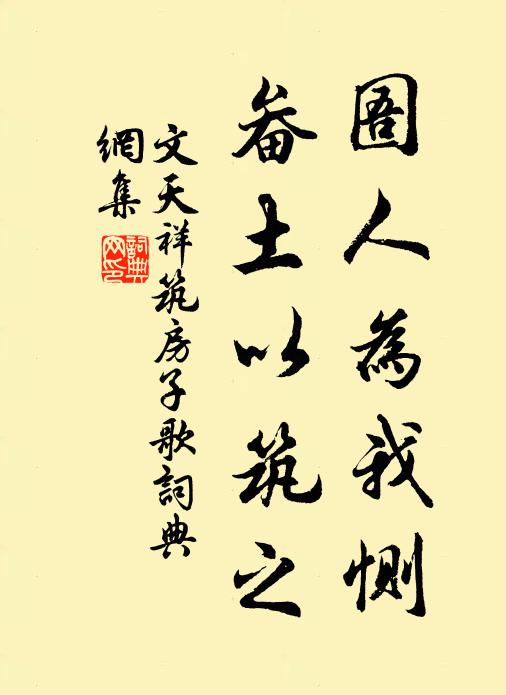 圄人為我惻
畚土以筑之
文天祥筑房子歌詞典
網集
詞典網印